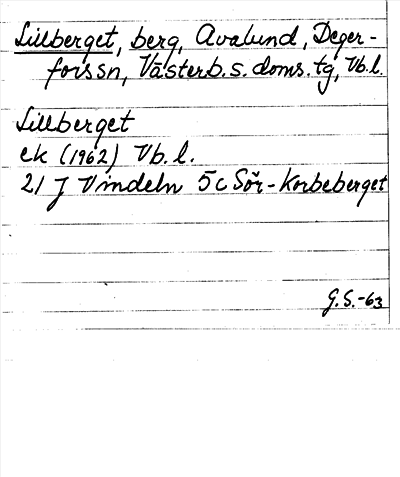 Lillberget, berg, Avalund, Deger-
forssn, Västerb. s. doms. tg, Vb. l.
Lillberget
ek (1962) Vb. l.
21 J Vindeln 5c Sör-Korbeberget
G.S.-63